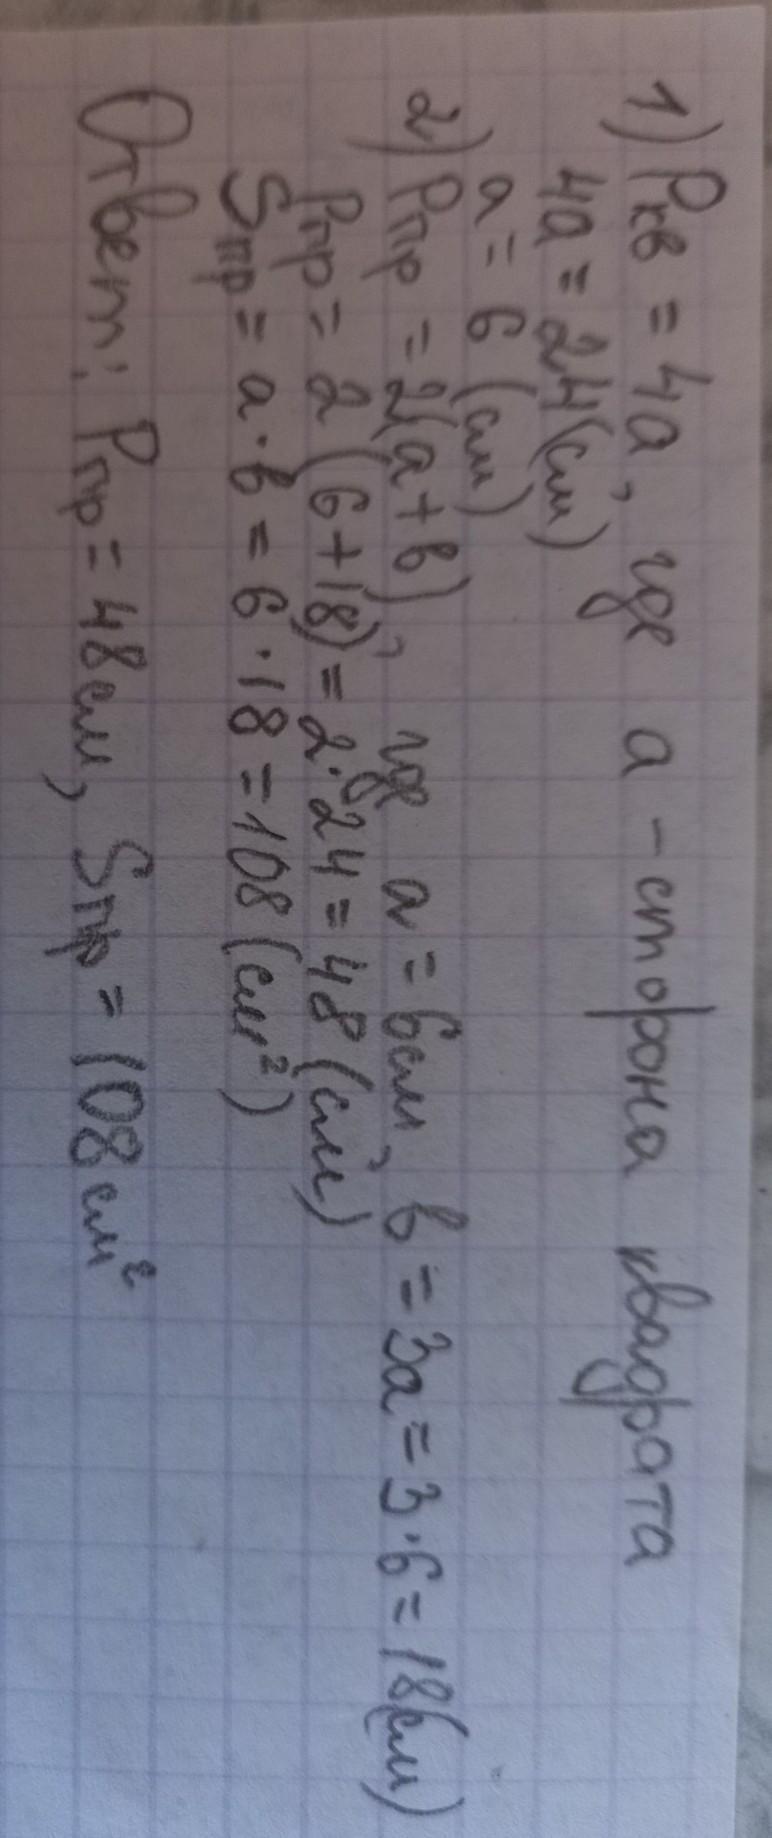 1) Pкв = 4a, где a - сторона квадрата
4a = 24 (см)
a = 6 (см)
2) Pпр = 2(a + b), где a = 6 см, b = 3a = 3 · 6 = 18 (см)
Pпр = 2 (6 + 18) = 2 · 24 = 48 (см)
Sпр = a · b = 6 · 18 = 108 (см²)
Ответ: Pпр = 48 см, Sпр = 108 см²